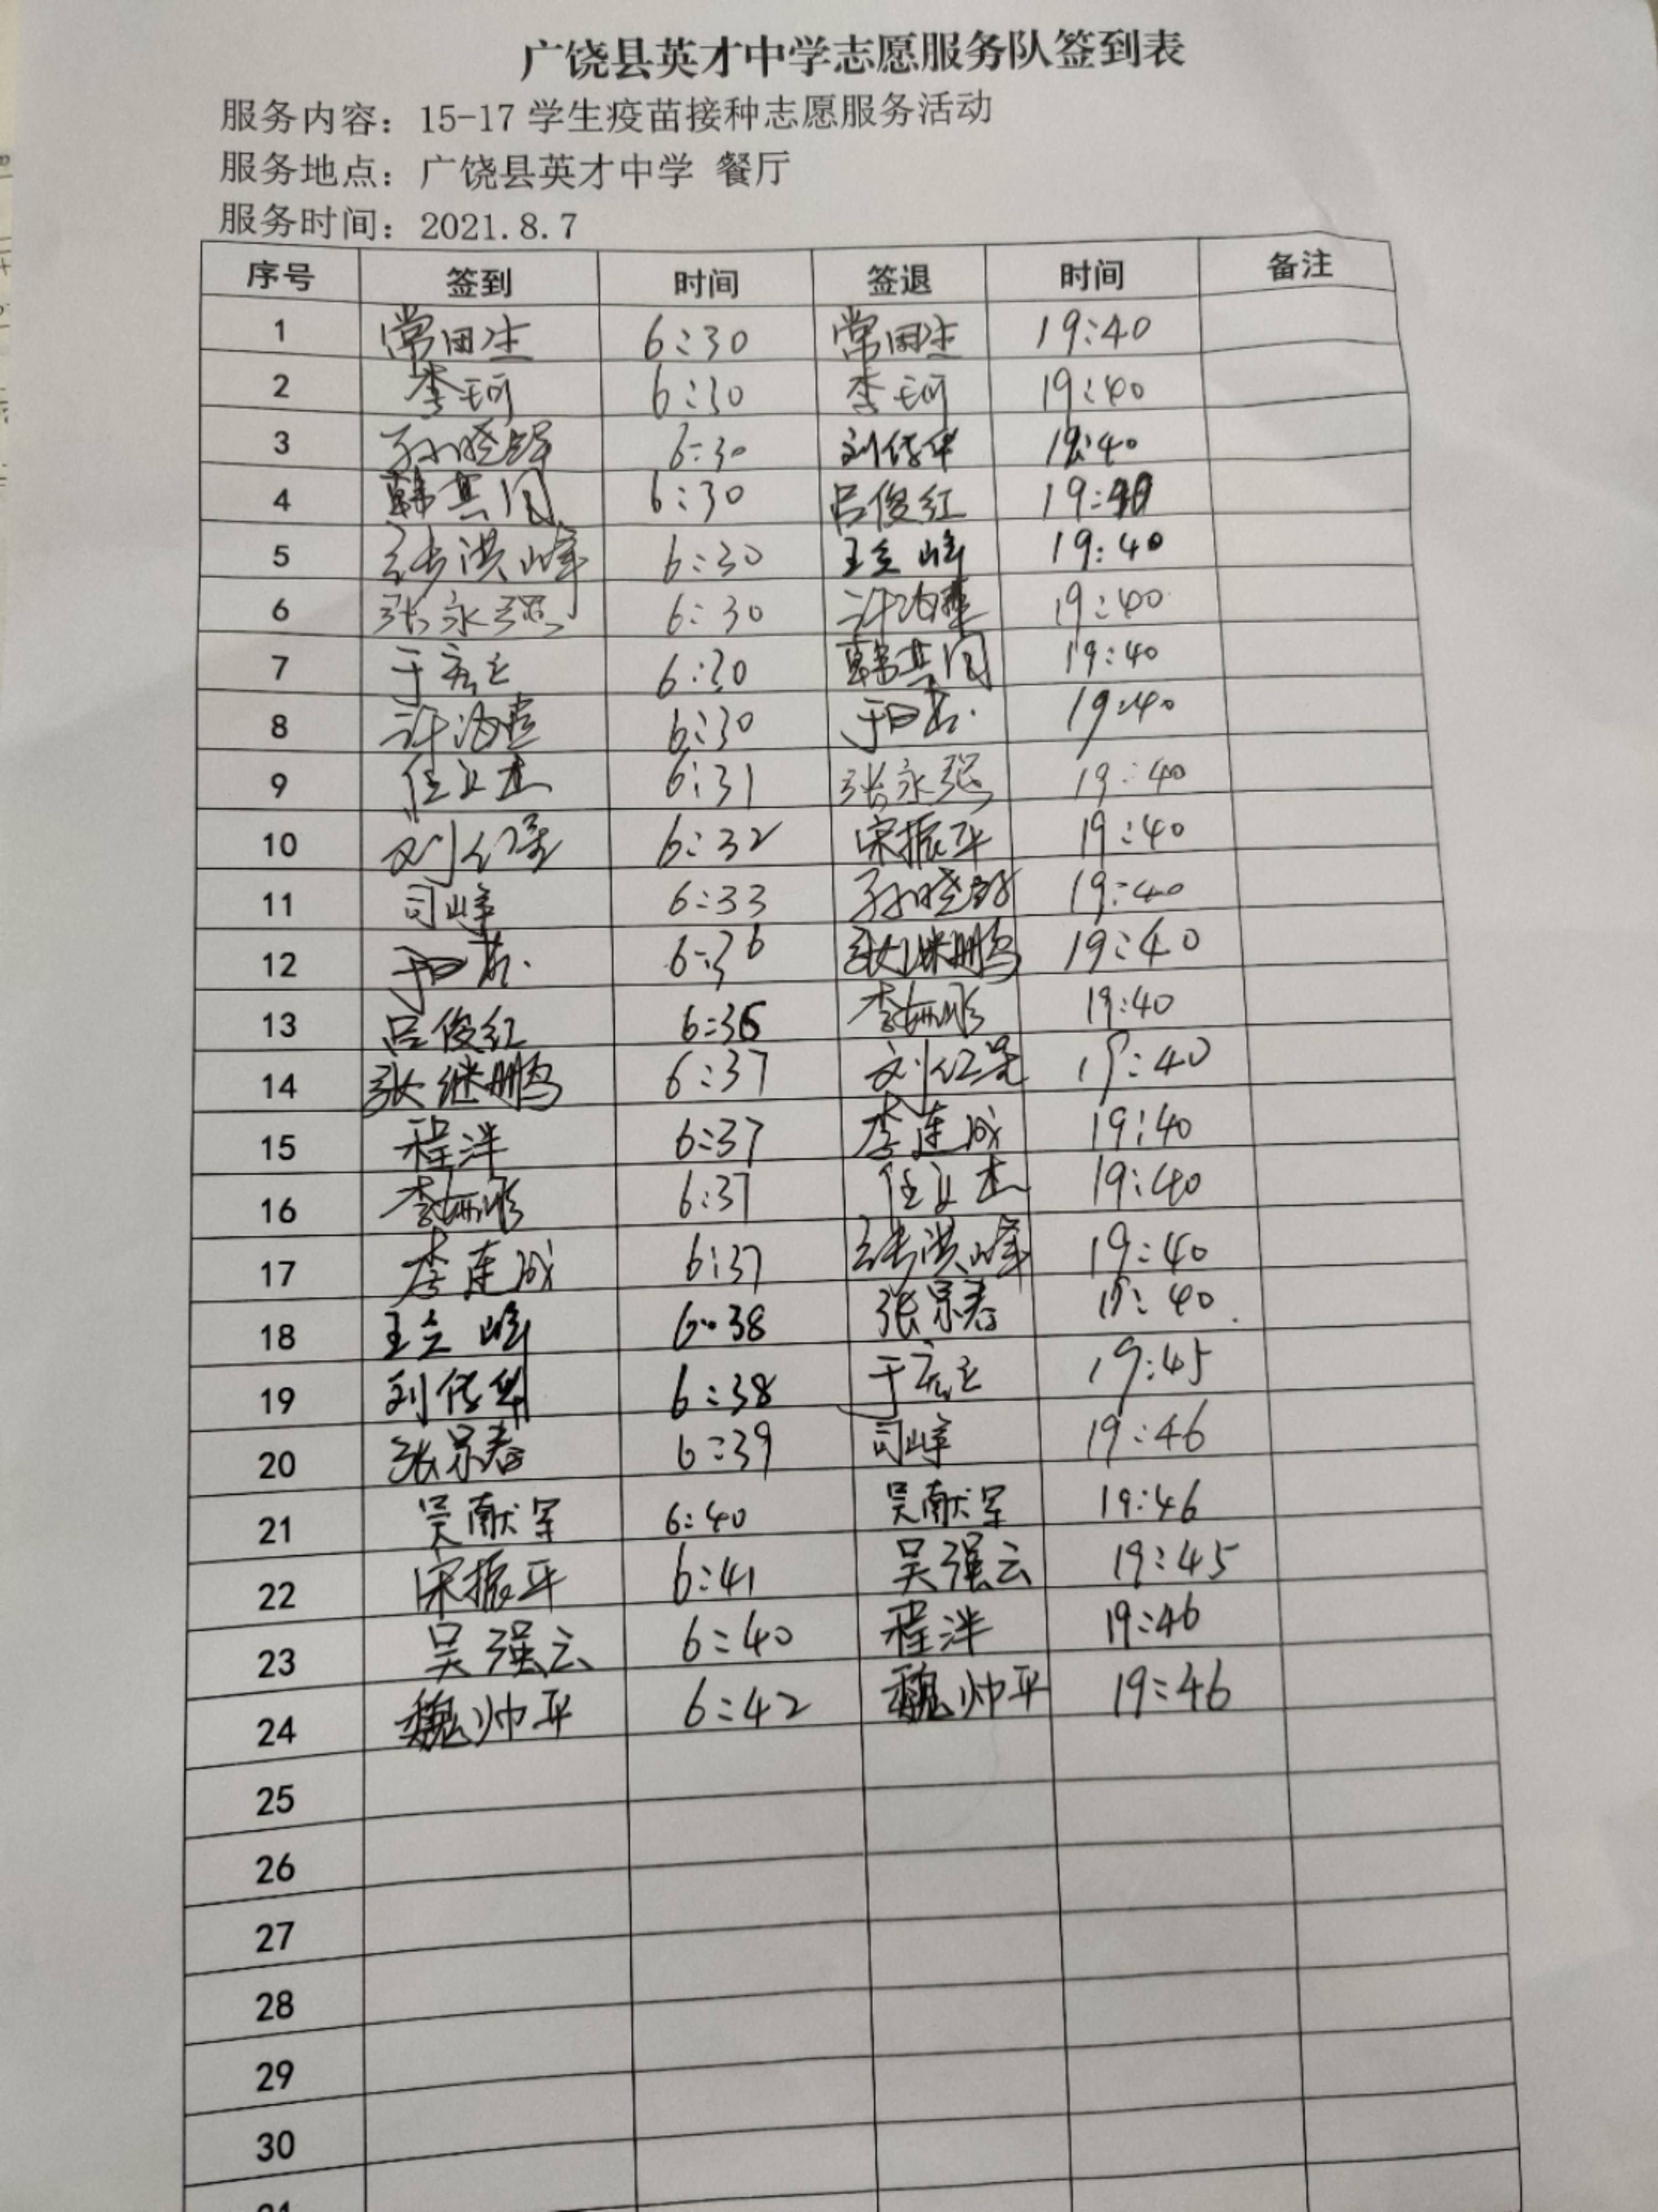 广饶县英才中学志愿服务队签到表
服务内容：15-17 学生疫苗接种志愿服务活动
服务地点：广饶县英才中学 餐厅
服务时间：2021.8.7
序号 签到 时间 签退 时间 备注
1 6:30 19:40
2 李珂 6:30 李珂 19:40
3 6:30 刘传华 19:40
4 6:30 吕俊红 19:40
5 张洪峰 6:30 王立峰 19:40
6 张永强 6:30 19:40
7 6:30 19:40
8 6:30 19:40
9 任立杰 6:31 张永强 19:40
10 6:32 宋振平 19:40
11 司峰 6:33 19:40
12 6:36 张继鹏 19:40
13 吕俊红 6:36 19:40
14 张继鹏 6:37 19:40
15 程洋 6:37 李连成 19:40
16 6:37 任立杰 19:40
17 李连成 6:37 张洪峰 19:40
18 王立峰 6:38 张景春 19:40
19 刘传华 6:38 19:45
20 张景春 6:39 司峰 19:46
21 吴献军 6:40 吴献军 19:46
22 宋振平 6:41 吴强云 19:45
23 吴强云 6:40 程洋 19:46
24 魏帅平 6:42 魏帅平 19:46
25
26
27
28
29
30